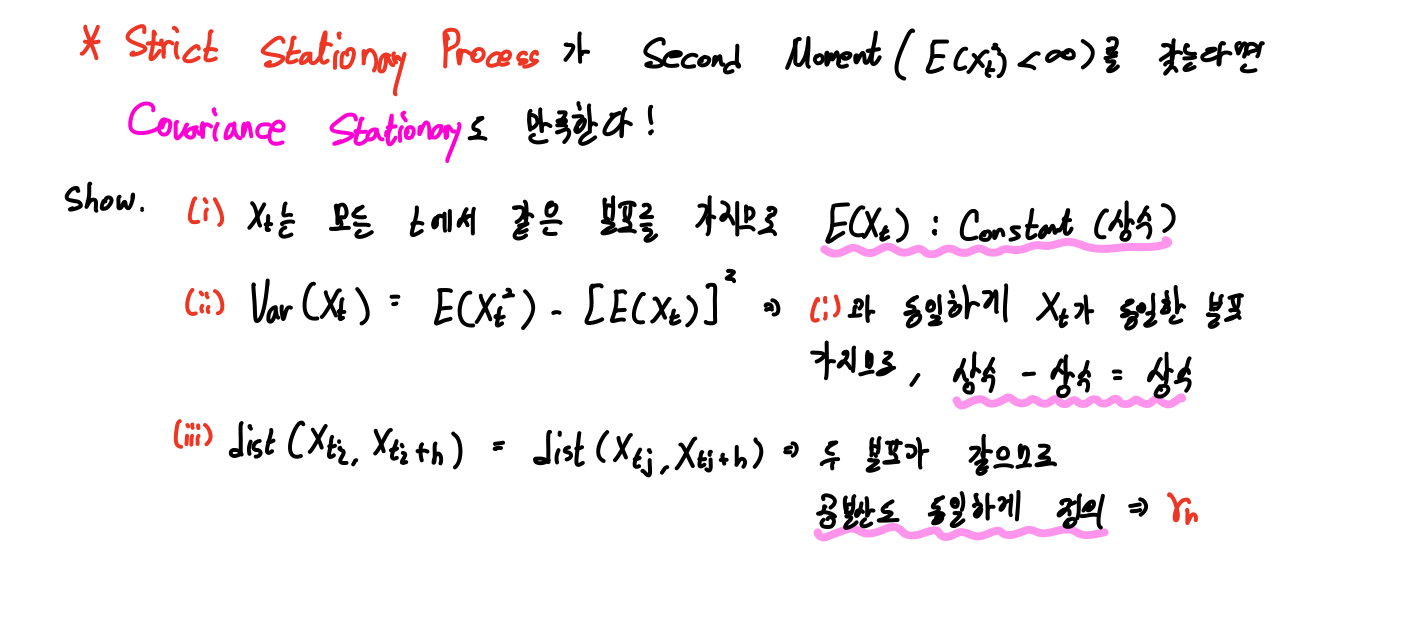 * Strict Stationary Process가 Second Moment (E(Xt²) < ∞)를 갖는다면
Covariance Stationary도 만족한다!
Show. (i) Xt는 모든 t에서 같은 분포를 가지므로 E(Xt) : Constant (상수)
(ii) Var(Xt) = E(Xt²) - [E(Xt)]² ⇒ (i)과 동일하게 Xt가 동일한 분포
가지므로, 상수 - 상수 = 상수
(iii) dist (Xti, Xti+h) = dist (Xtj, Xtj+h) ⇒ 두 분포가 같으므로
공분산도 동일하게 정의 ⇒ γh